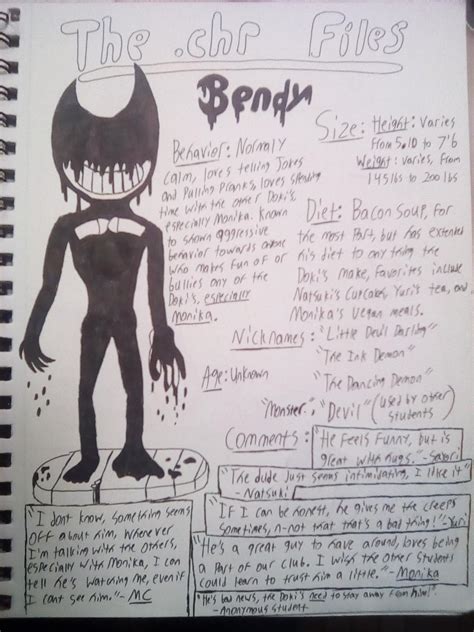 The .chr Files
Bendy
Behavior: Normaly
calm, loves telling Jokes
and Pulling Pranks, loves spending
time with the other Doki's,
especially Monika. Known
to shown aggressive
behavior towards anyone
who makes fun of or
bullies any of the
Doki's, especially
monika.
Age: Unknown
Size: Height: Varies
From 5.10 to 7'6
Weight: Varies, From
145 lbs to 200 lbs
Diet: Bacon Soup, for
the most Part, but has extended
his diet to any thing the
Doki's make, Favorites include
Natsuki's Cupcakes, Yuri's tea, and
Monika's vegan meals.
Nicknames: "Little Devil Darling"
"The Ink Demon"
"The Dancing Demon"
"Monster", "Devil" (used by other
students)
Comments:
"He Feels Funny, but is
great with hugs." -Sayori
"The dude Just seems intimidating, I like it"
-Natsuki
"If I can be honest, he gives me the creeps
sometimes, n-not that that's a bad thing!" -Yuri
"He's a great guy to have around, loves being
a Part of our club. I wish the other students
could learn to trust him a little." -Monika
"He's bad news, the Doki's need to stay away from him!"
-Anonymous student
"I dont know, something seems
off about him, whenever
I'm talking with the others,
especially with Monika, I can
tell he's watching me, even if
I cant see him." - MC